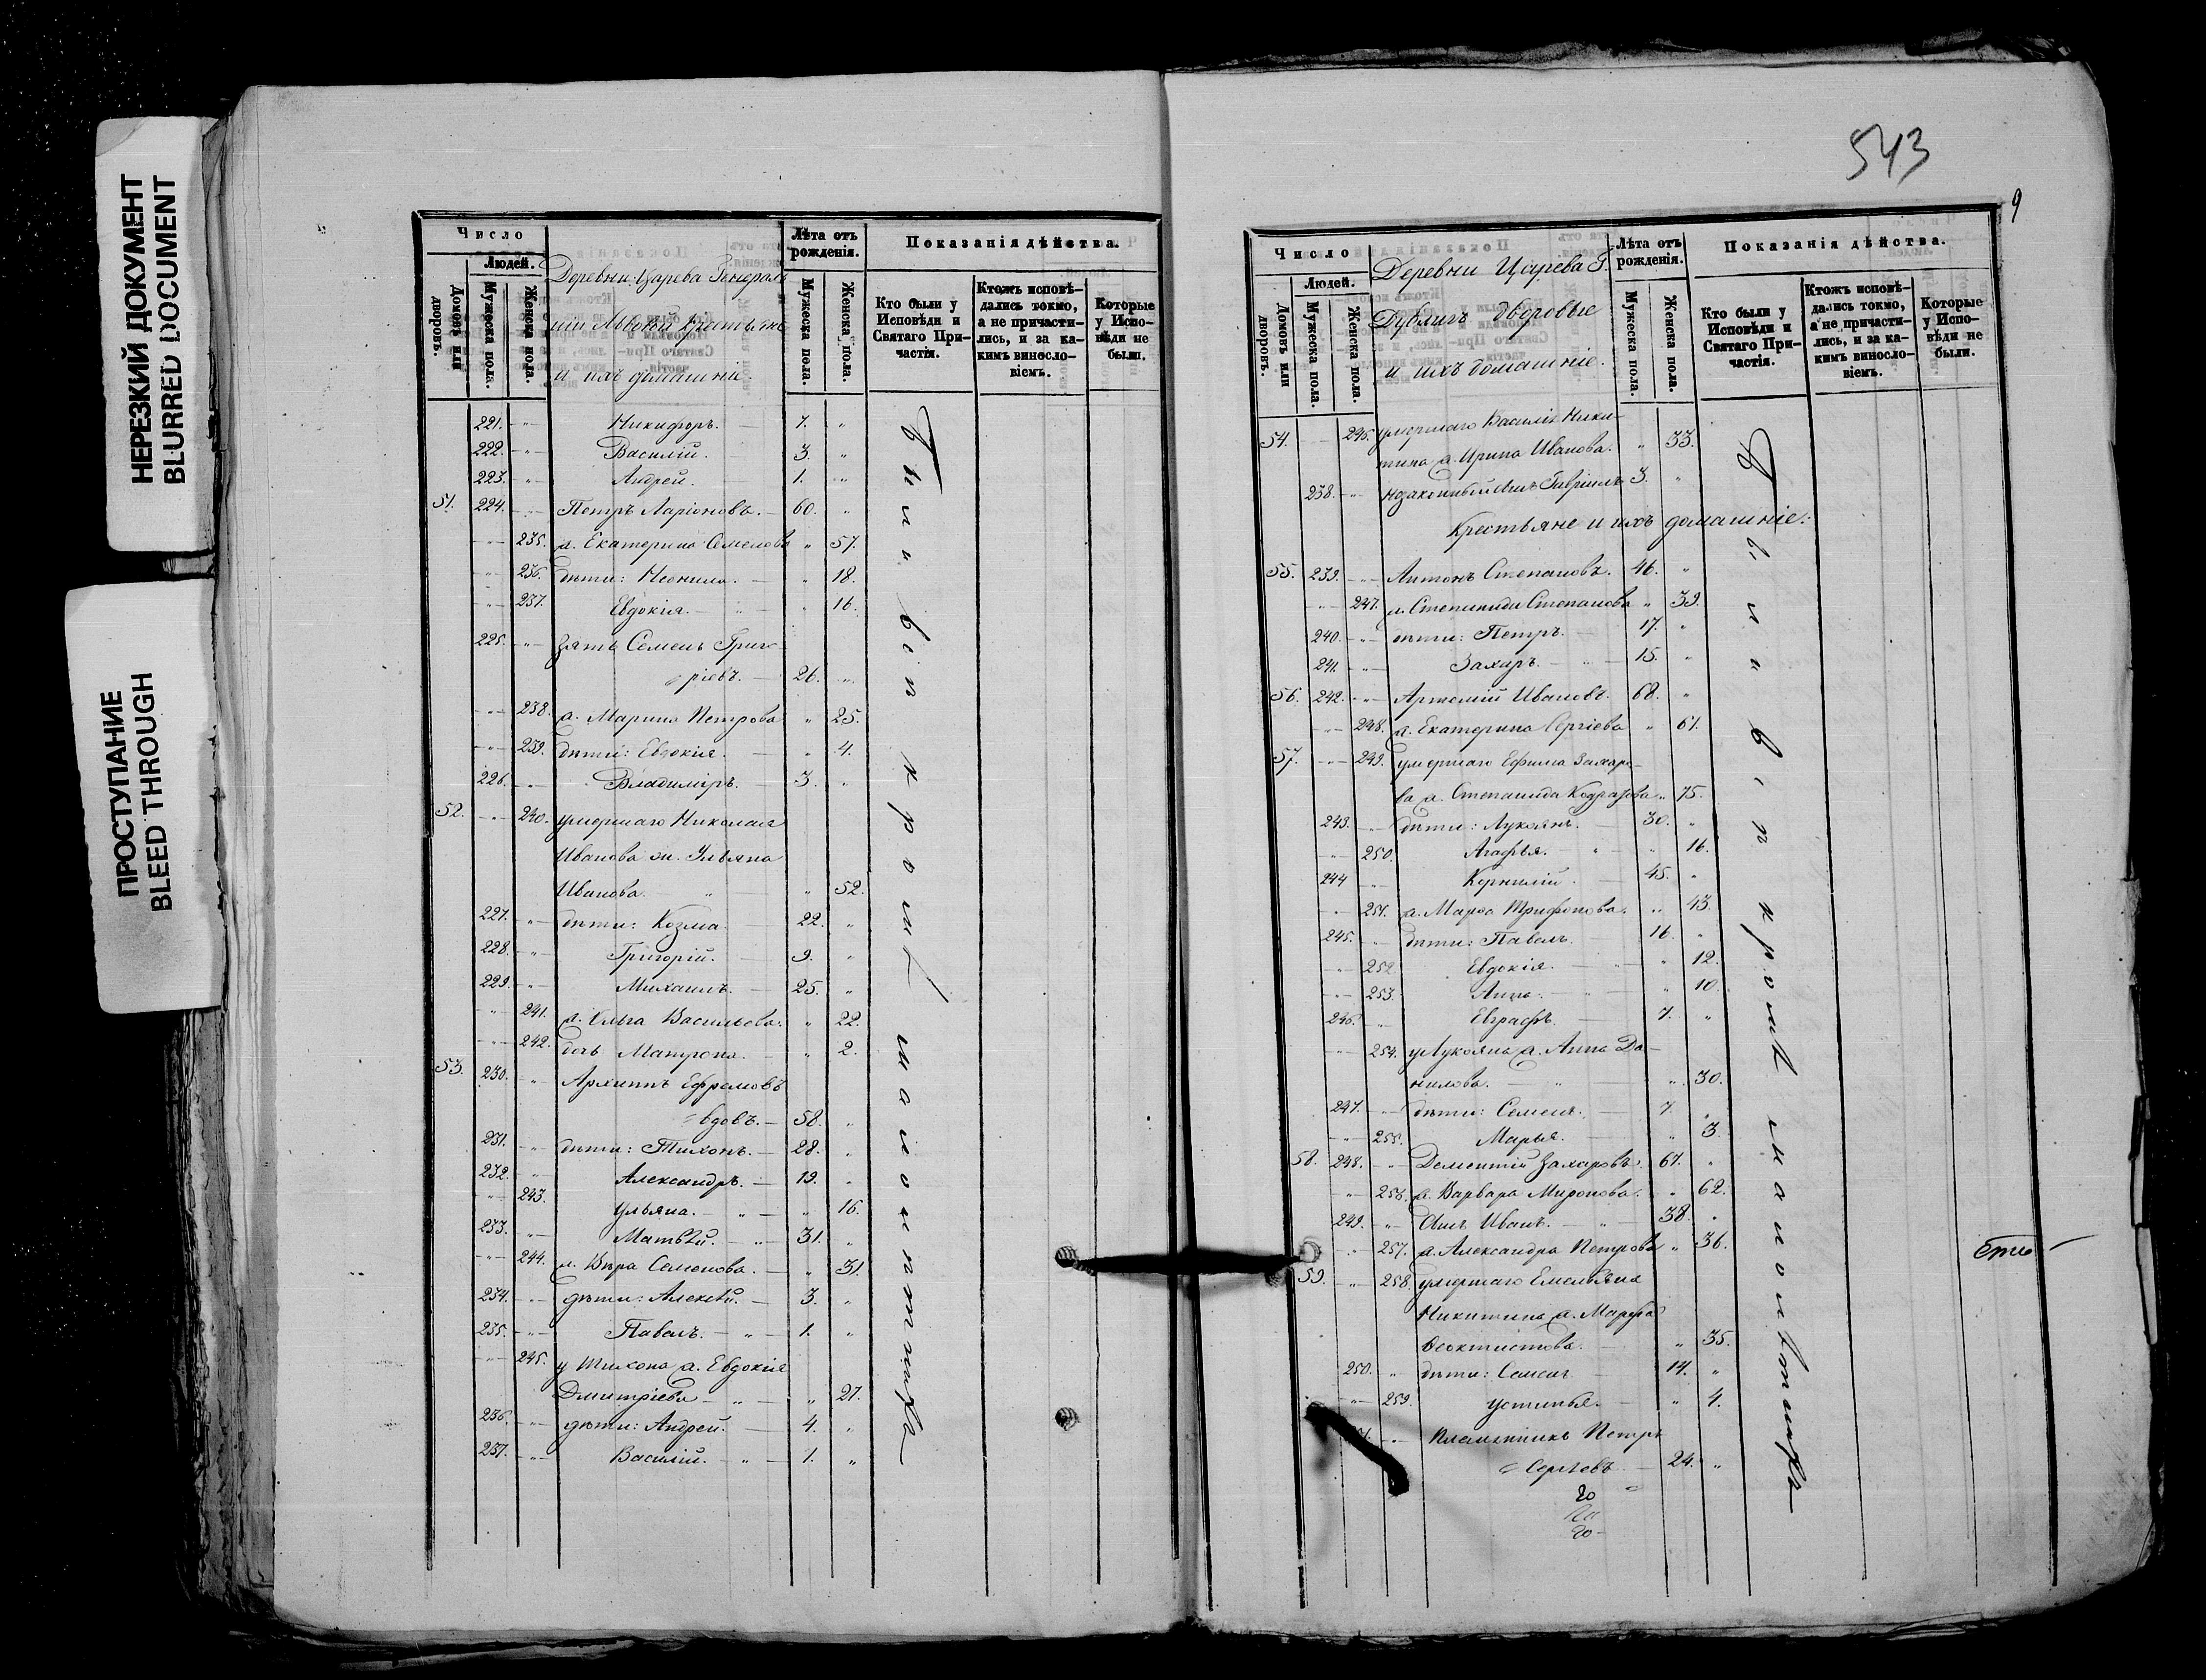 НЕРЕЗКИЙ ДОКУМЕНТ
BLURRED DOCUMENT
ПРОСТУПАНИЕ
BLEED THROUGH
Число
Домовъ или дворовъ.
Людей.
Мужеска пола.
Женска пола.
Деревни Царева Генераль
ши Львовой крестьяне
и ихъ домашніе.
Лѣта отъ рожденія.
Мужеска пола.
Женска пола.
Показанія дѣйства.
Кто были у Исповѣди и Святаго Причастія.
Ктожъ исповѣдались токмо, а не причастились, и за какимъ винословіемъ.
Которые у Исповѣди не были.
221. -"- Никифоръ. — 7. "
222. -"- Василій. — 3. "
223. -"- Андрей. — 1. "
51. 224. -"- Петръ Ларіоновъ. — 60. "
-"- 235. ж. Екатерина Семенова " 57.
-"- 236. дѣти: Неонила. — " 18.
-"- 237. Евдокія. — " 16.
225. -"- зять Семенъ Григо
ріевъ. — 26. "
-"- 238. ж. Марина Петрова " 25.
-"- 239. дѣти: Евдокія. — " 4.
226. -"- Владиміръ. — 3. "
52. -"- 240. умершаго Николая
Иванова ж. Ульяна
Иванова. — " 52.
227. -"- дѣти: Козма. — 22. "
228. -"- Григорій. — 9. "
229. -"- Михаилъ. — 25. "
-"- 241. ж. Ольга Васильева. " 22.
-"- 242. дочь Матрона. — " 2.
53. 230. -"- Архиппъ Ефремовъ
вдовъ. — 58. "
231. -"- дѣти: Тихонъ. — 28. "
232. -"- Александръ. — 19. "
-"- 243. Ульяна. — " 16.
233. -"- Матвѣй. — 31. "
-"- 244. ж. Вѣра Семенова. — " 31.
234. -"- дѣти: Алексѣй. — 3. "
235. -"- Павелъ. — 1. "
-"- 245. у Тихона ж. Евдокія
Дмитріева — " 27.
236. -"- дѣти: Андрей. — 4. "
237. -"- Василій. — 1. "
Были
543
9
Число
Домовъ или дворовъ.
Людей.
Мужеска пола.
Женска пола.
Деревни Царева Г.
Дубличъ дворовые
и ихъ домашніе.
Лѣта отъ рожденія.
Мужеска пола.
Женска пола.
Показанія дѣйства.
Кто были у Исповѣди и Святаго Причастія.
Ктожъ исповѣдались токмо, а не причастились, и за какимъ винословіемъ.
Которые у Исповѣди не были.
54. -"- 246. умершаго Василія Ники-
тина ж. Ирина Иванова. " 33.
238. -"- незаконный сынъ Гавріилъ 3. "
Крестьяне и ихъ домашніе:
55. 239. -"- Антонъ Степановъ. 46. "
-"- 247. ж. Степанида Степанова " 39.
240. -"- дѣти: Петръ. — 17. "
241. -"- Захаръ. — 15. "
56. 242. -"- Артемій Ивановъ. 68. "
-"- 248. ж. Екатерина Сергіева " 61.
57. -"- 249. умершаго Ефима Захаро-
ва ж. Степанида " 75.
243. -"- дѣти: Лукоянъ. — 30. "
-"- 250. Агафья. — " 16.
244 -"- Корнилій. — 45. "
-"- 251. ж. Марѳа Трифонова. " 43.
245. -"- дѣти: Павелъ. — 16. "
-"- 252 Евдокія. — " 12.
-"- 253. Анна. — " 10.
246. -"- Евграфъ. — 7. "
-"- 254. у Лукояна ж. Анна Да-
нилова. — " 30.
247. -"- дѣти: Семенъ. — 7. "
-"- 255. Марья. — " 3.
58. 248. -"- Дементій Захаровъ. 67. "
-"- 256. ж. Варвара Миронова. " 62.
249. -"- сынъ Иванъ. — 38. "
-"- 257. ж. Александра Петрова " 36.
59. -"- 258. умершаго Емельяна
Никитина ж. Марфа
Ѳеоктистова. — " 35.
250. -"- дѣти: Семенъ — 14. "
-"- 259. Устинья. — " 4.
-"- племянникъ Петръ
Сергѣевъ. — 24. "
Были